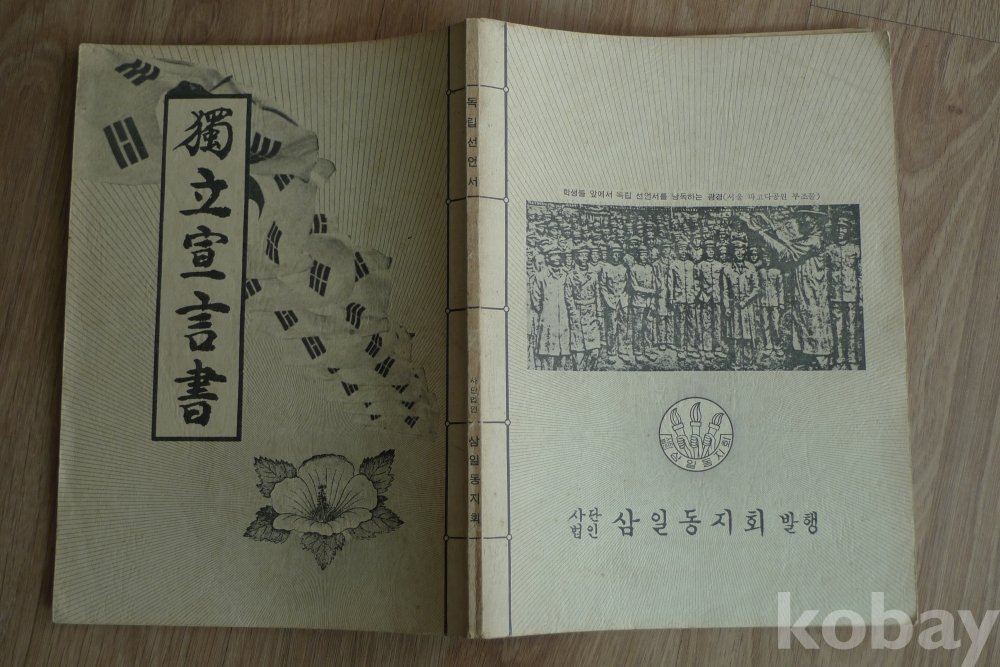 獨立宣言書
독립선언서
사단법인 삼일동지회
학생들 앞에서 독립 선언서를 낭독하는 광경(서울 파고다공원 부조물)
삼일동지회
사단
법인 삼일동지회 발행
kobay